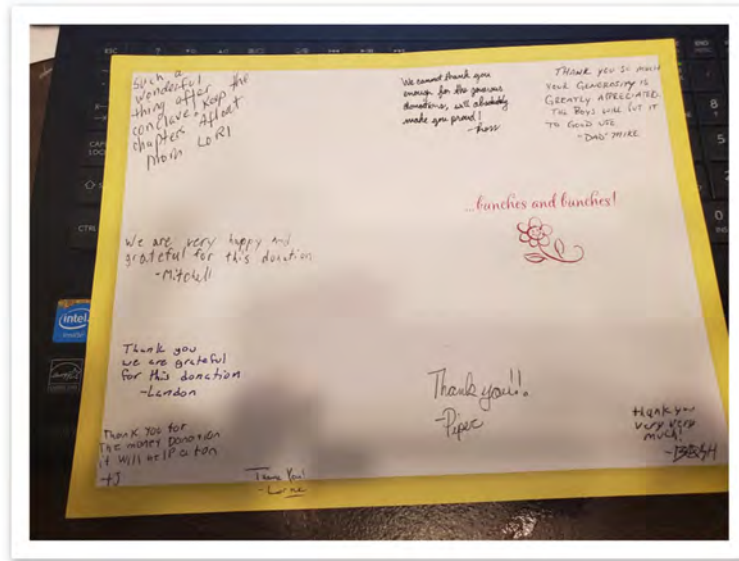 Such a
wonderful
thing after
conclave. Keep the
chapters Afloat
Mom LORI
We cannot thank you
enough for the generous
donations, will absolutely
make you proud!
THANK YOU SO MUCH
YOUR GENEROSITY IS
GREATLY APPRECIATED.
THE BOYS WILL PUT IT
TO GOOD USE.
"DAD" MIKE
...bunches and bunches!
We are very happy and
grateful for this donation
-Mitchell
Thank you
we are grateful
for this donation
-Landon
Thank you!!.
-Piper
thank you
very very
much!
Thank You for
The money Donation
it Will help a ton
Thank You!
-Lorne
intel
ESC
CTRL
8
0